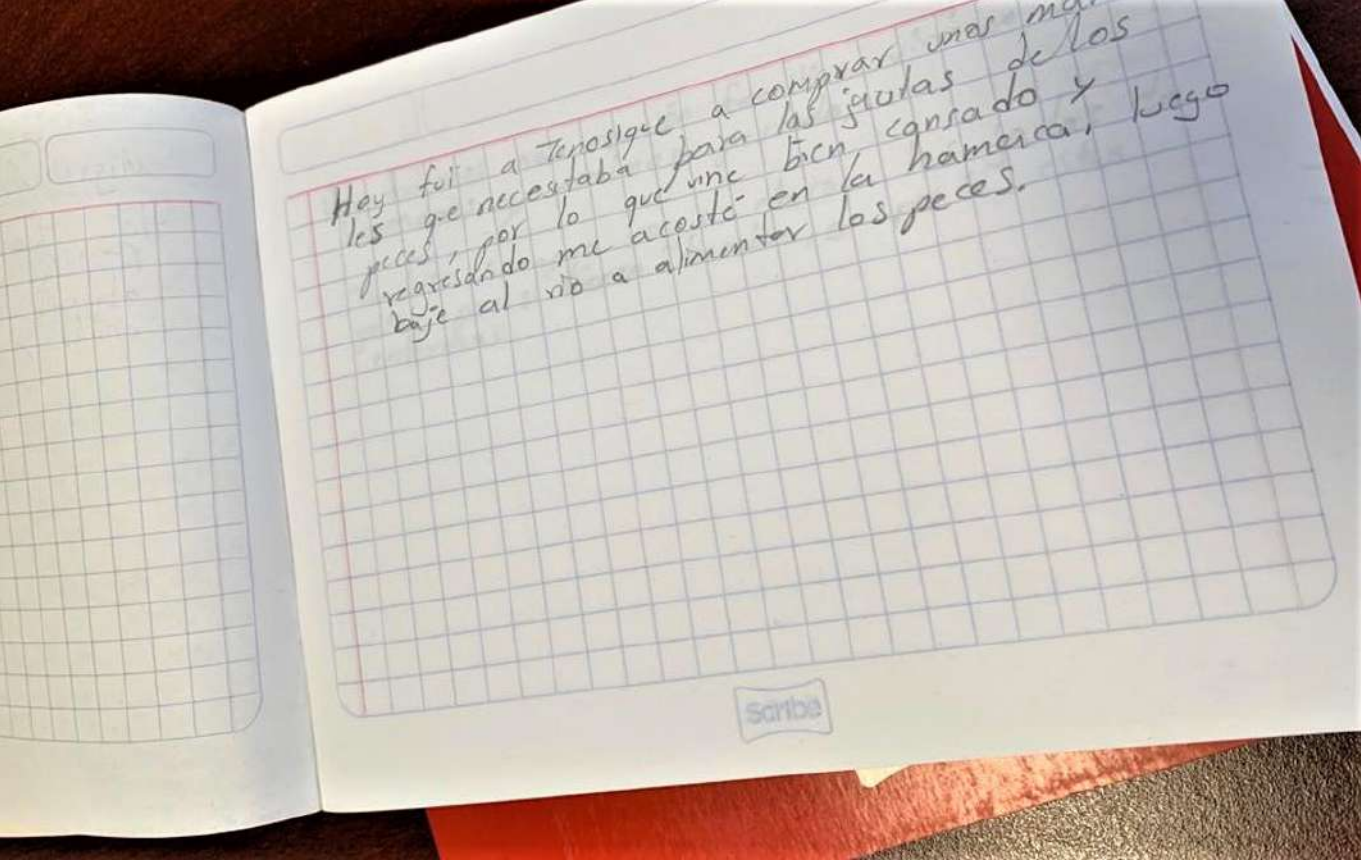 Hoy fui a Tenosique a comprar unos ma
les qe necesitaba para las jaulas de los
peces, por lo que vine bien cansado y
regresando me acosté en la hamaca, luego
baje al rio a alimentar los peces.
Scribe